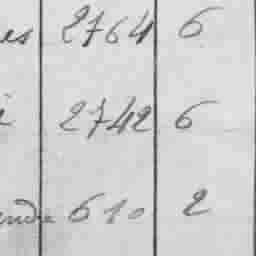 es 2764 6
2742 6
endre 610 2